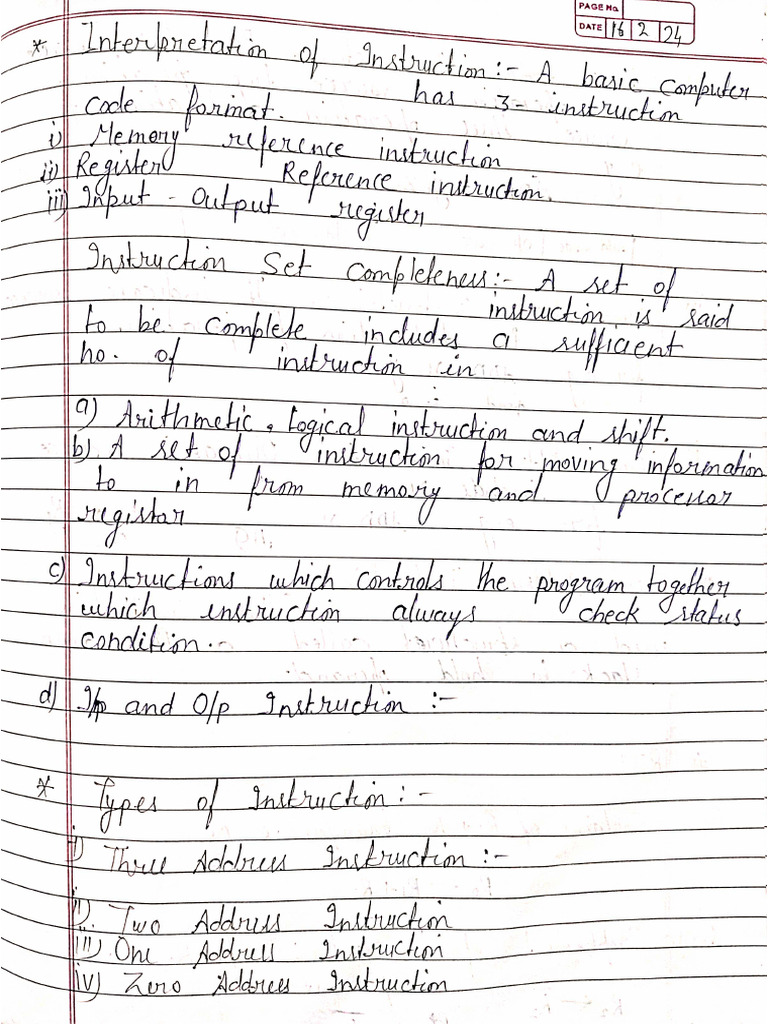 PAGE No.
DATE 16 2 24
* Interpretation of Instruction:- A basic computer
has 3- instruction
code format.
i) Memory reference instruction
ii) Register Reference instruction.
iii) Input - Output register
Instruction Set Completeness:- A set of
instruction is said
to be complete includes a sufficient
no. of instruction in
:
a) Arithmetic, Logical instruction and shift.
b) A set of instruction for moving information
to in from memory and processor
registar
c) Instructions which controls the program together
which instruction always check status
condition.-
d) I/p and O/p Instruction :-
* Types of Instruction:-
i) Three Address Instruction :-
ii). Two Address Instruction
iii) One Address Instruction
iv) Zero Address Instruction